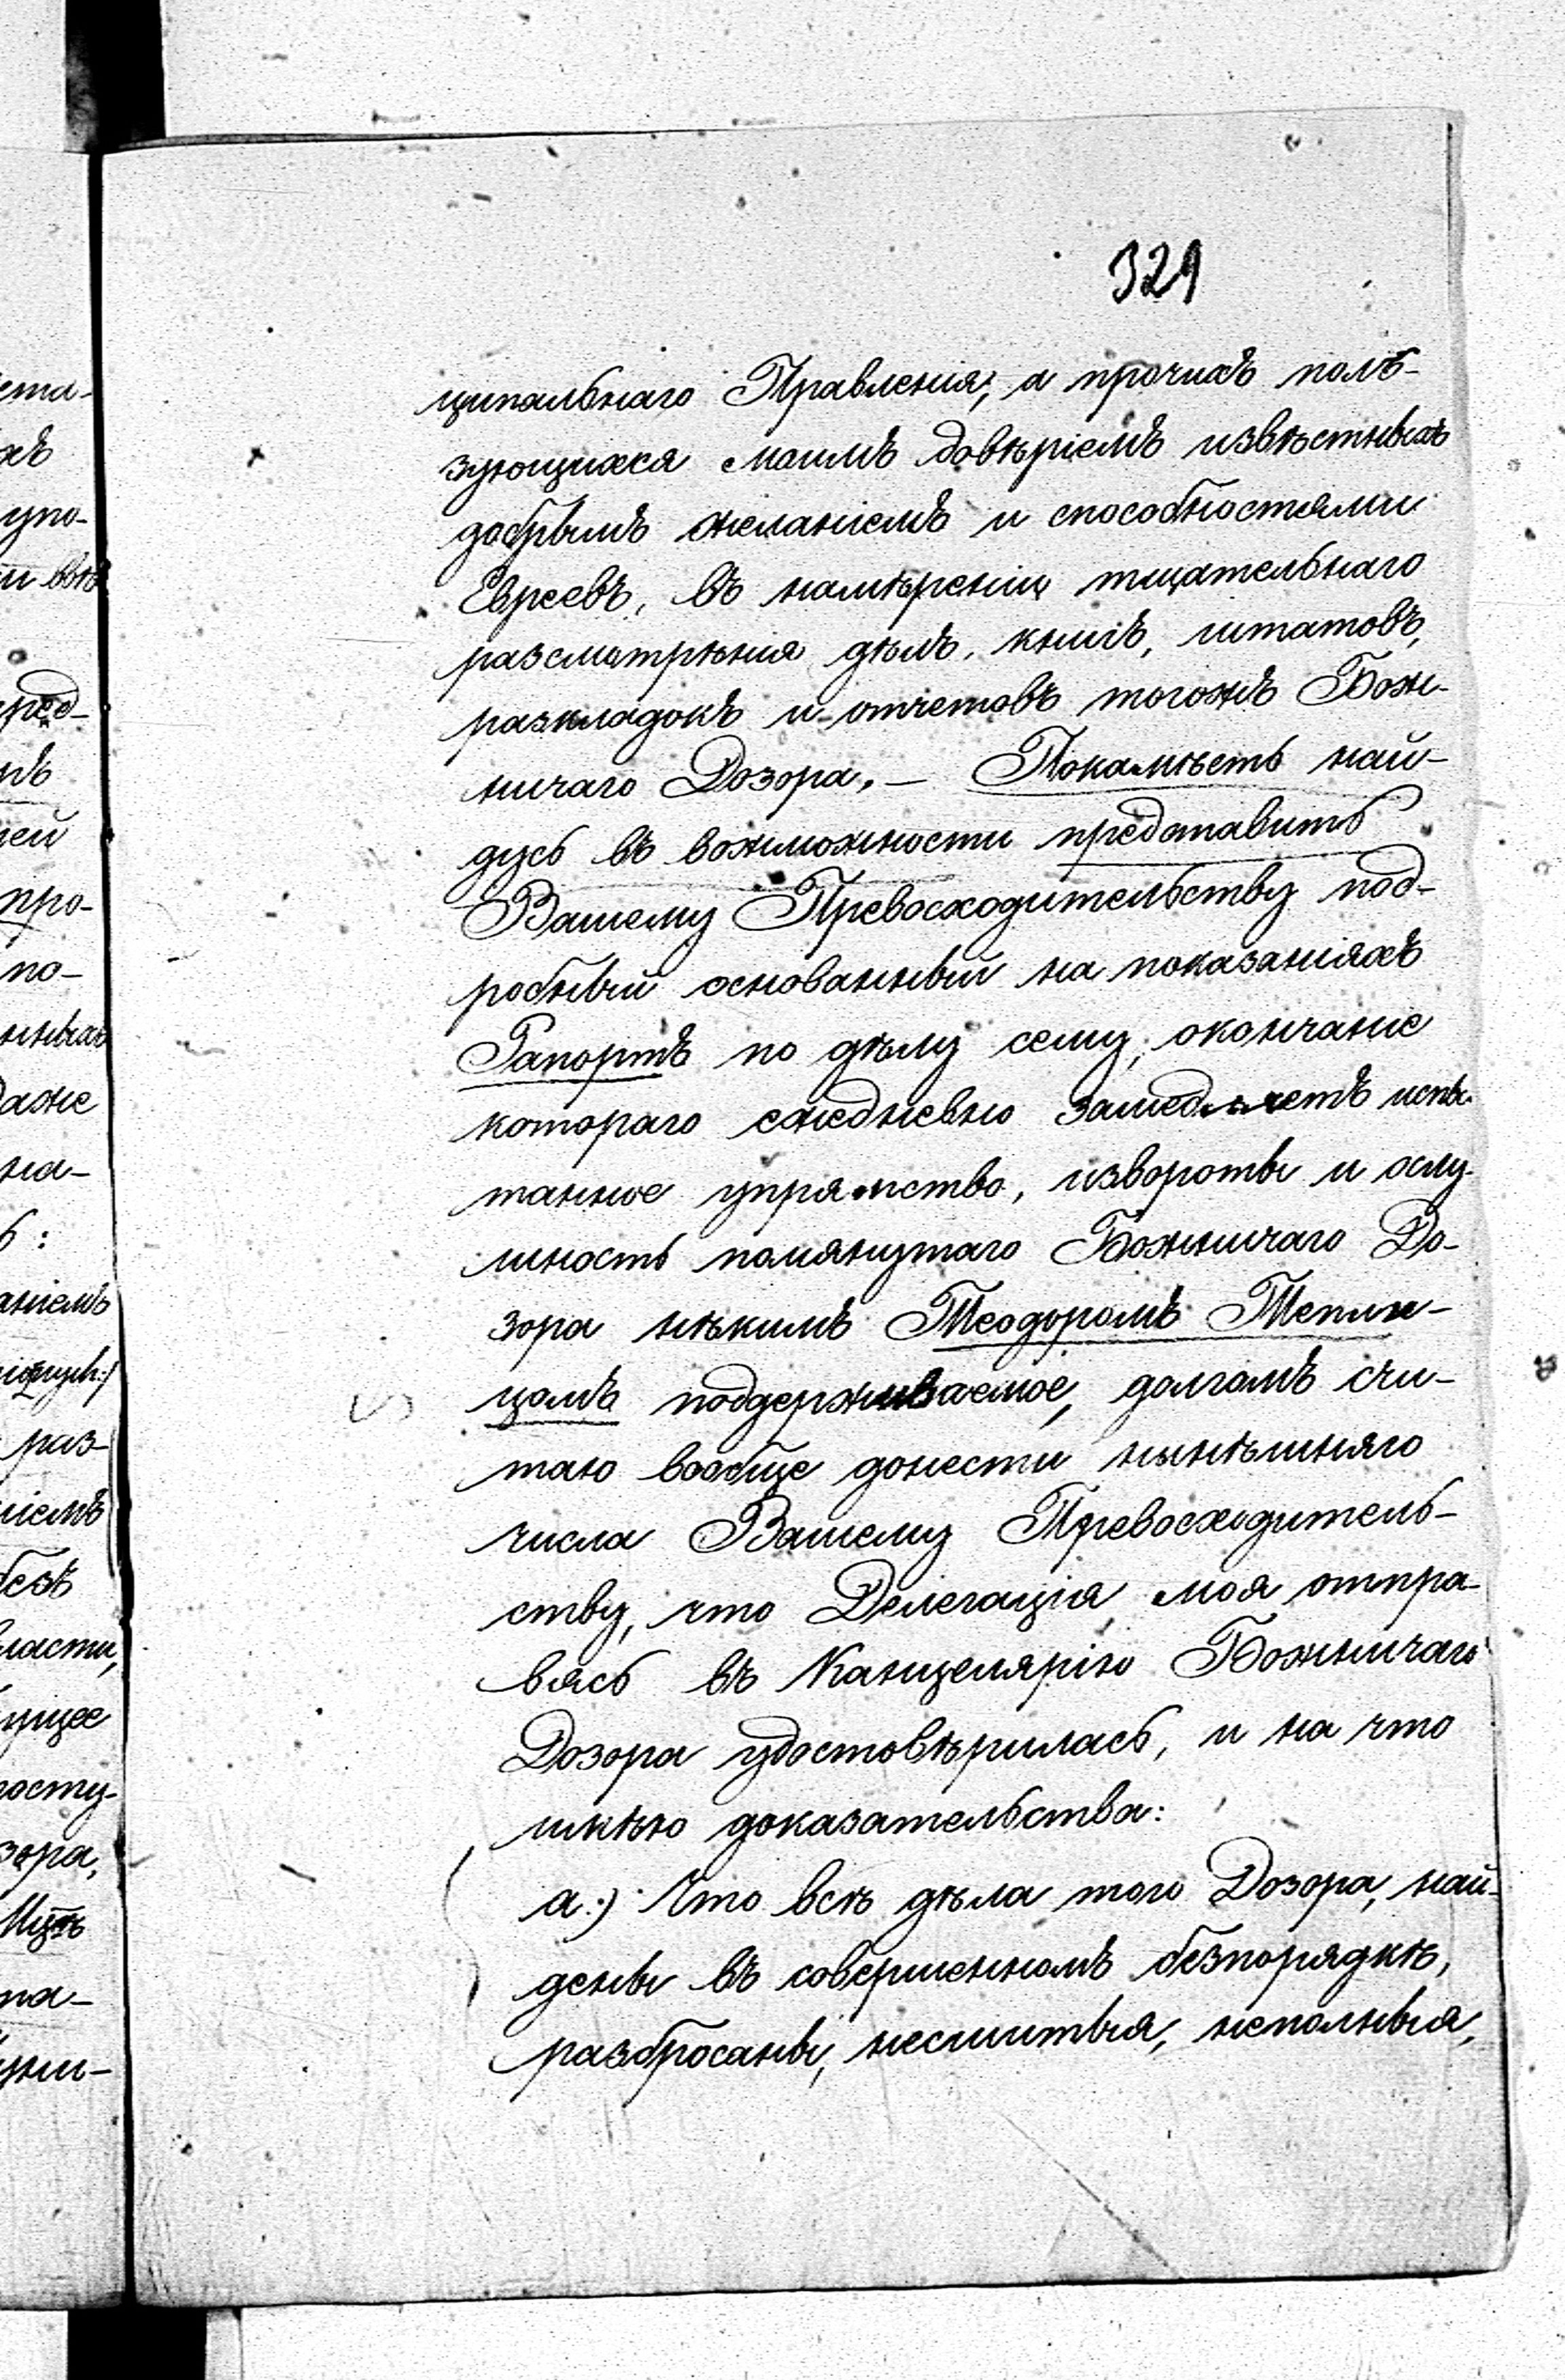 329
ципальнаго Правленія, а прочихъ поль-
зующихся моимъ довѣріемъ извѣстныхъ
добрымъ желаніемъ и способностями
Евреевъ, въ намѣреніи тщательнаго
разсматрѣнія дѣлъ, книгъ, штатовъ,
разкладокъ и отчетовъ тогожъ Бож-
ничаго Дозора. — Покамѣсть най-
дусь въ возможности представить
Вашему Превосходительству под-
робный основанный на показаніяхъ
Рапортъ по дѣлу сему, окончаніе
котораго ежедневно замедляетъ испы-
танное упрямство, извороты и ослу-
шность помянутаго Божничаго До-
зора нѣкимъ Теодоромъ Тепли-
цомъ поддерживаемое, долгомъ счи-
таю вообще донести нынѣшняго
числа Вашему Превосходитель-
ству, что Делегація моя отпра-
вясь въ Канцелярію Божничаго
Дозора удостовѣрилась, и на что
имѣю доказательства:
а.) Что всѣ дѣла того Дозора, най-
дены въ совершенномъ безпорядкѣ,
разбросаны, несшитыя, неполныя,